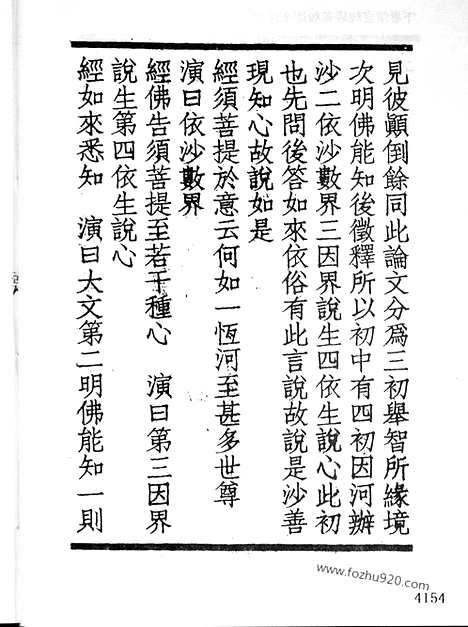 見彼顚倒餘同此論文分爲三初舉智所緣境
次明佛能知後徵釋所以初中有四初因河辦
沙二依沙數界三因界說生四依生說心此初
也先問後答如來依俗有此言說故說是沙善
現知心故說如是
經須菩提於意云何如一恆河至甚多世尊
演曰依沙數界
經佛告須菩提至若干種心　演曰第三因界
說生第四依生說心
經如來悉知　演曰大文第二明佛能知一則
www.fozhu920.com
4154